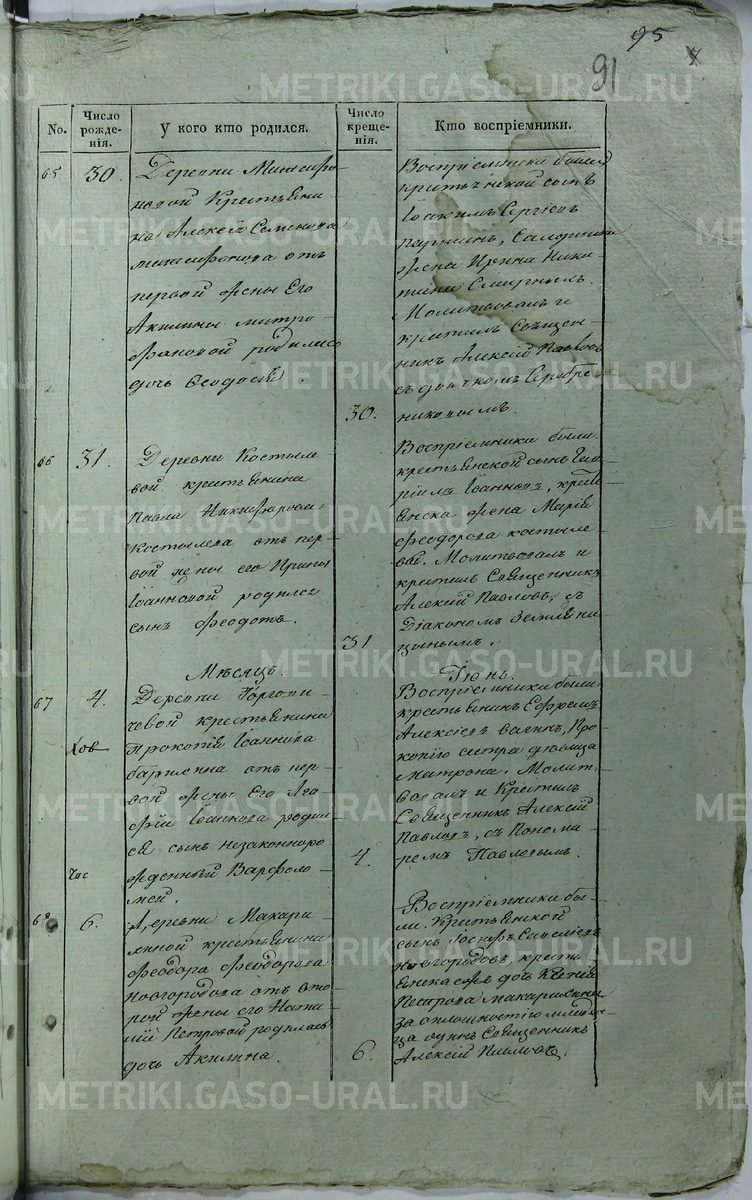 95
91
No.
Число рожде-
нія.
У кого кто родился.
Число
крещe-
нія.
Кто воспріемники.
65
30.
Деревни Митрофа-
новой Крестьяни-
на Алексѣя Семенова
от
первой жены Его
Акилины Митро-
фановой родилась
дочь Феодосія.
Воспріемники были
крестьянской сынъ
Іоакимъ Сергіевъ
жена Ирина Ники-
тина
Молитвовалъ и
крестилъ Священ-
никъ Алексій Павловъ
съ дьячкомъ Серебре-
никовымъ.
30.
66
31.
Деревни Костыле-
вой крестьянина
Павла Никифорова
Костылева отъ пер-
вой жены его Ирины
Іоанновой родился
сынъ Феодотъ.
Воспріемники были
крестьянской сынъ Гав-
ріилъ Іоанновъ, крест
янска жена Марія
Феодорова Костыле
ва. Молитвовалъ и
крестилъ Священникъ
Алексій Павловъ, съ
Діакономъ Земляни
цынымъ.
31
Мѣсяцъ.
Іюнь.
67
4.
Деревни
чевой крестьянина
Прокопія Іоаннова
отъ пер-
вой жены Его
Іоаннова родил-
ся сынъ незаконноро
жденный Варфоло-
мей.
Воспріемники были
крестьянинъ Ефремъ
Алексіевъ Прo-
копію сестра дѣвица
Матрона. Молит-
вовалъ и Крестилъ
Священникъ Алексій
Павловъ, съ Понома-
ремъ Павловымъ.
4.
68
6.
Деревни Макари-
ниной крестьянина
Феодора Феодорова
Новгородова отъ вто
рой жены его Ната-
ліи Петровой родилась
дочь Акилина.
Воспріемники бы-
ли Крестьянской
сынъ Іосифъ Савеліевъ
Новгородовъ, кресть
янская дочь Ксенія
Петрова
за
Священникъ
Алексій Павловъ.
6.
METRIKI.GASO-URAL.RU